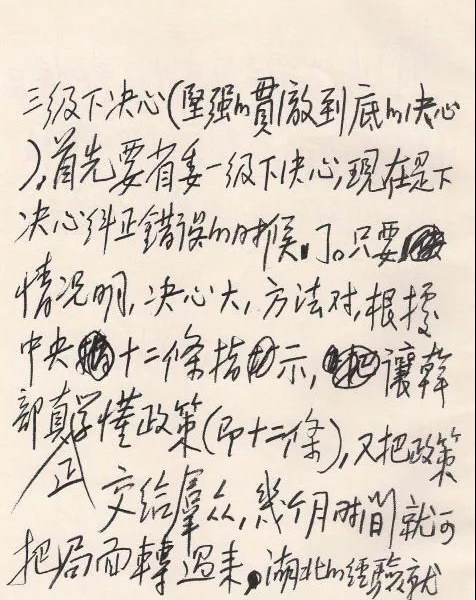 三级下决心(坚强的貫澈到底的决心
),首先要省委一级下决心,現在是下
决心纠正錯誤的时候了。只要
情况明,决心大,方法对,根據
中央十二條指示,讓幹
部真正学懂政策(即十二條),又把政策
交给羣众,幾个月时间就可
把局面轉过来,湖北的经驗就